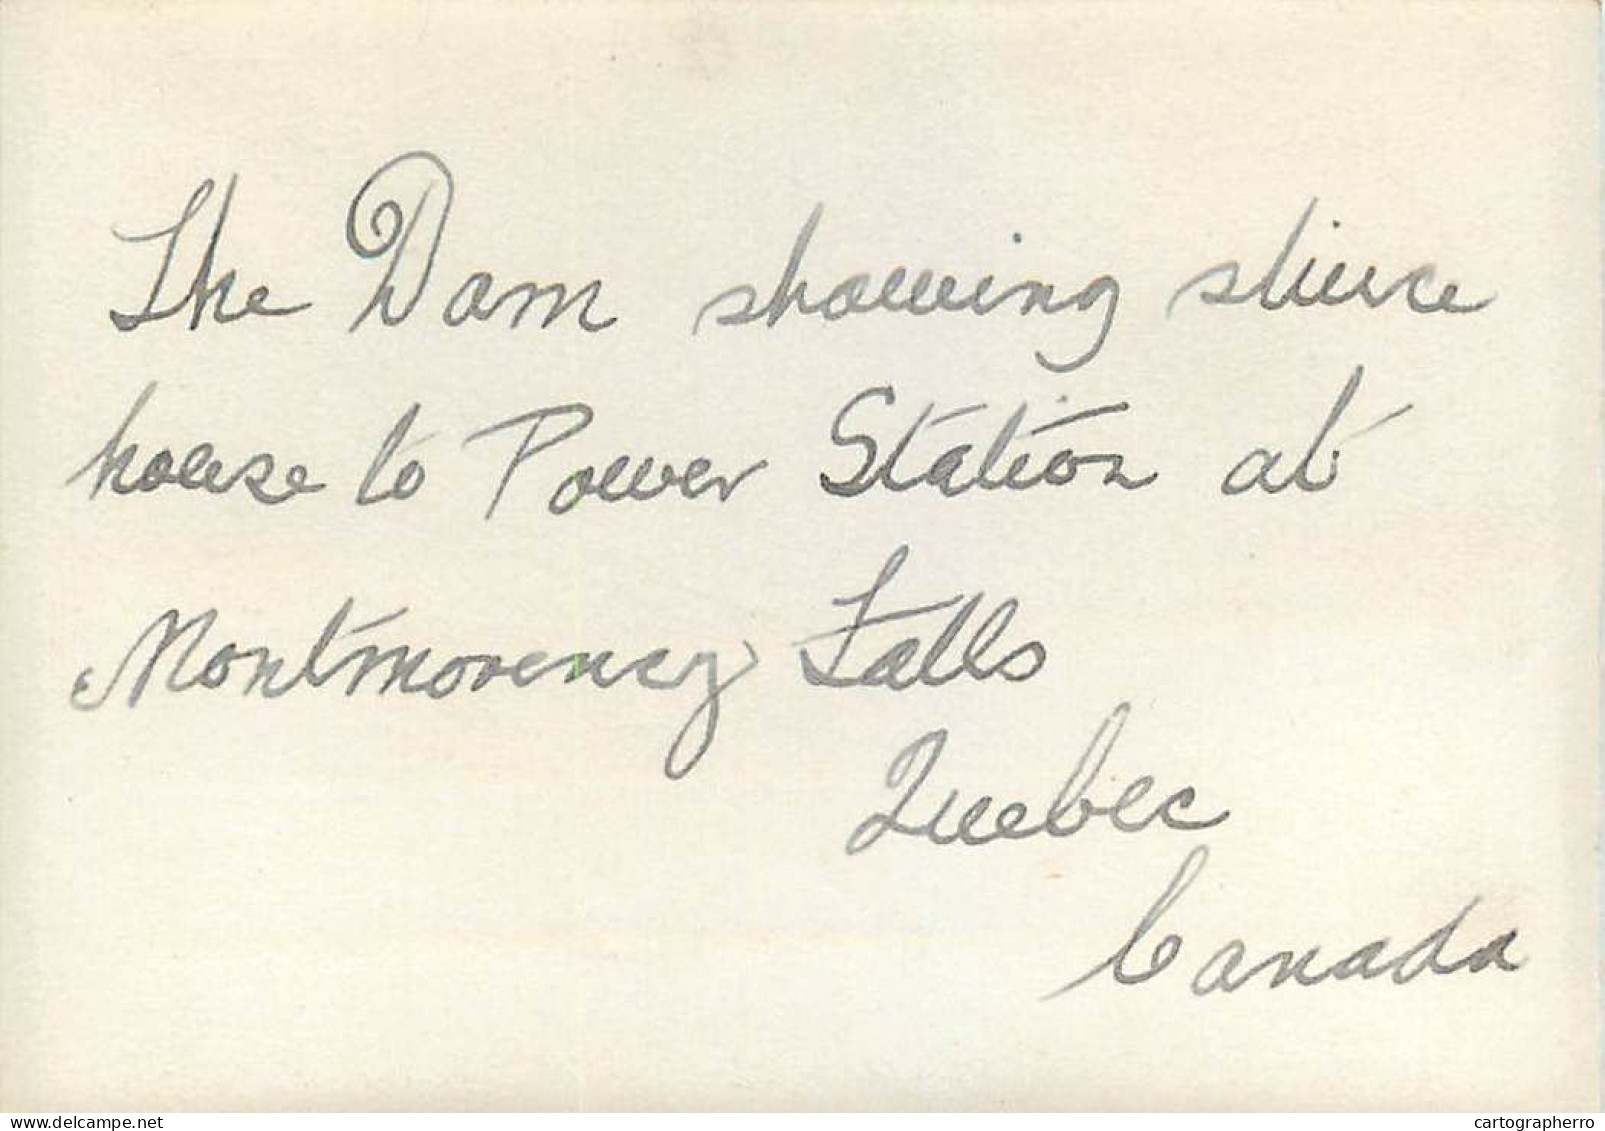 The Dam showing sluice
house to Power Station at
Montmorency Falls
Quebec
Canada
delcampe.net
cartographerro